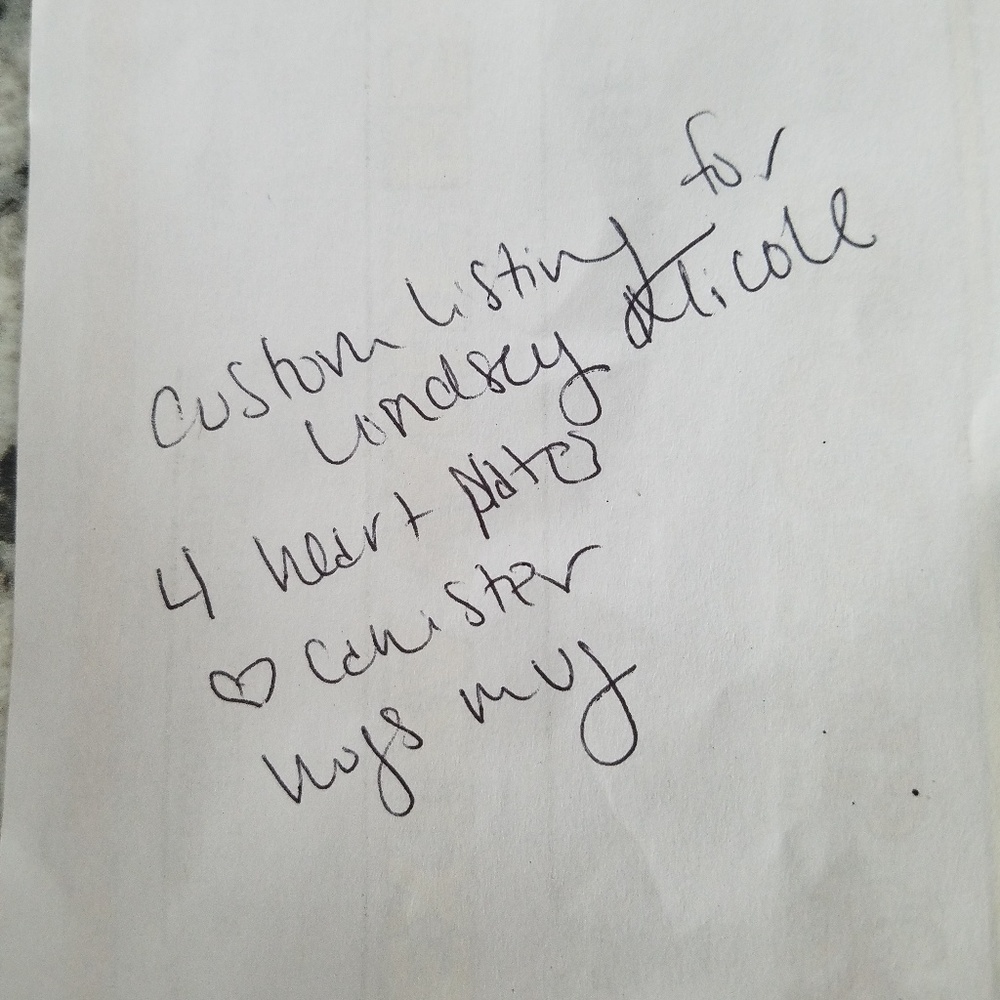 Custom listing for
Lindsey Nicole
4 heart plates
♡ Canister
hugs mug